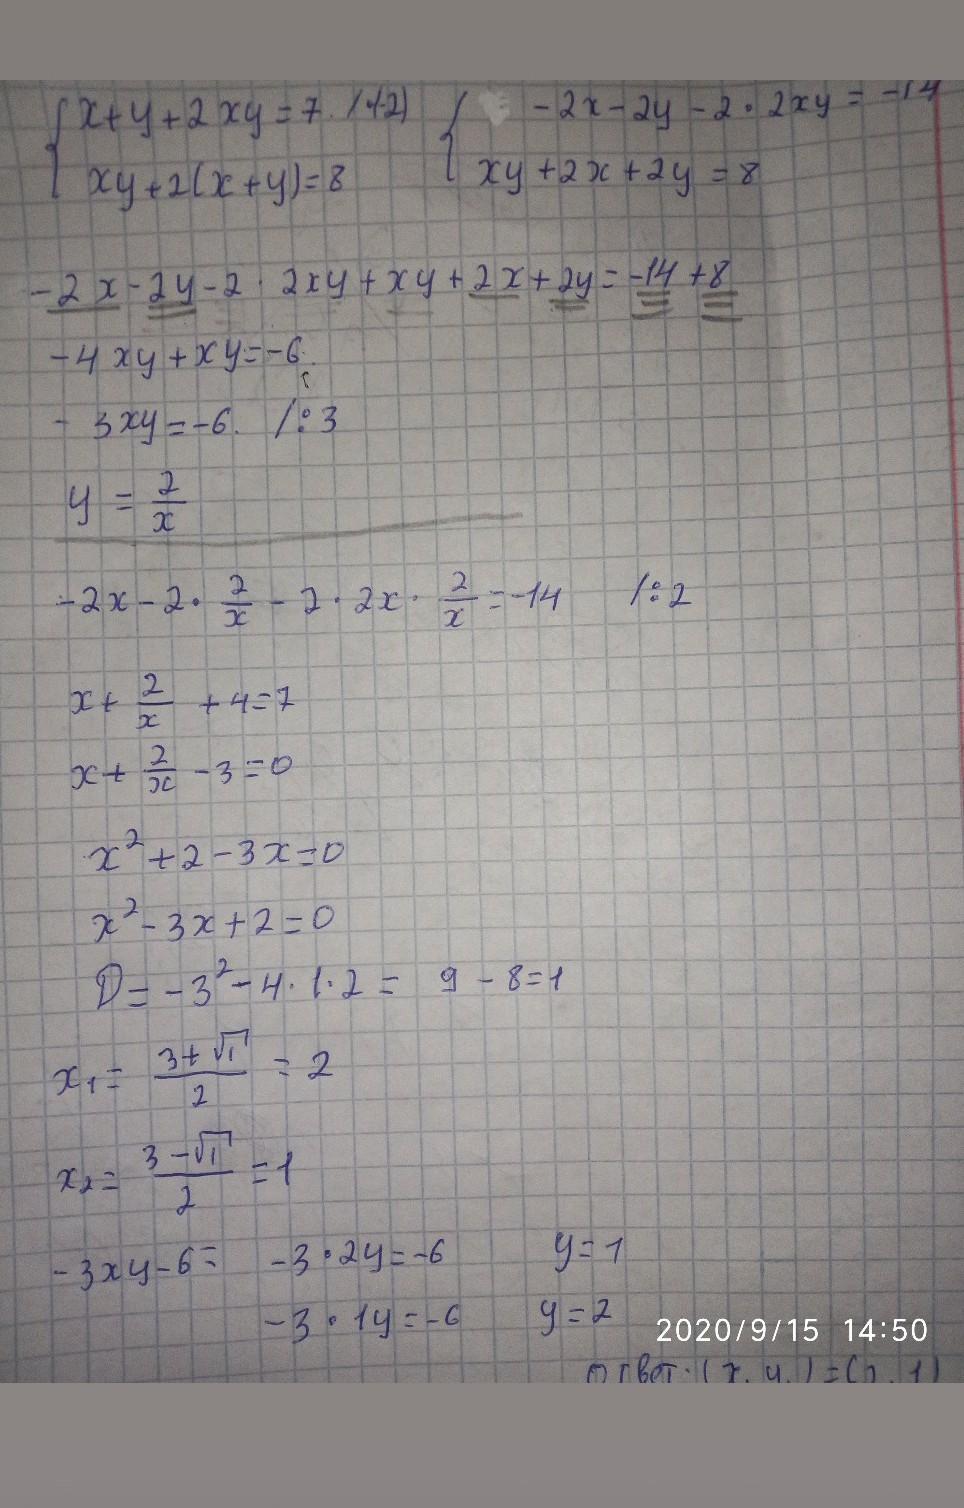 { x+y+2xy=7. /·(-2) { -2x-2y-2·2xy=-14
xy+2(x+y)=8 xy+2x+2y=8
-2x-2y-2·2xy+xy+2x+2y=-14+8
-4xy+xy=-6.
-3xy=-6. /:3
y = 2/x
-2x-2·2/x-2·2x·2/x=-14 /:2
x+2/x+4=7
x+2/x-3=0
x²+2-3x=0
x²-3x+2=0
D=-3²-4·1·2= 9-8=1
x₁= (3+√1)/2 =2
x₂= (3-√1)/2 =1
-3xy-6= -3·2y=-6 y=1
-3·1y=-6 y=2
2020/9/15 14:50
Ответ:(x, y,)=(2,1)